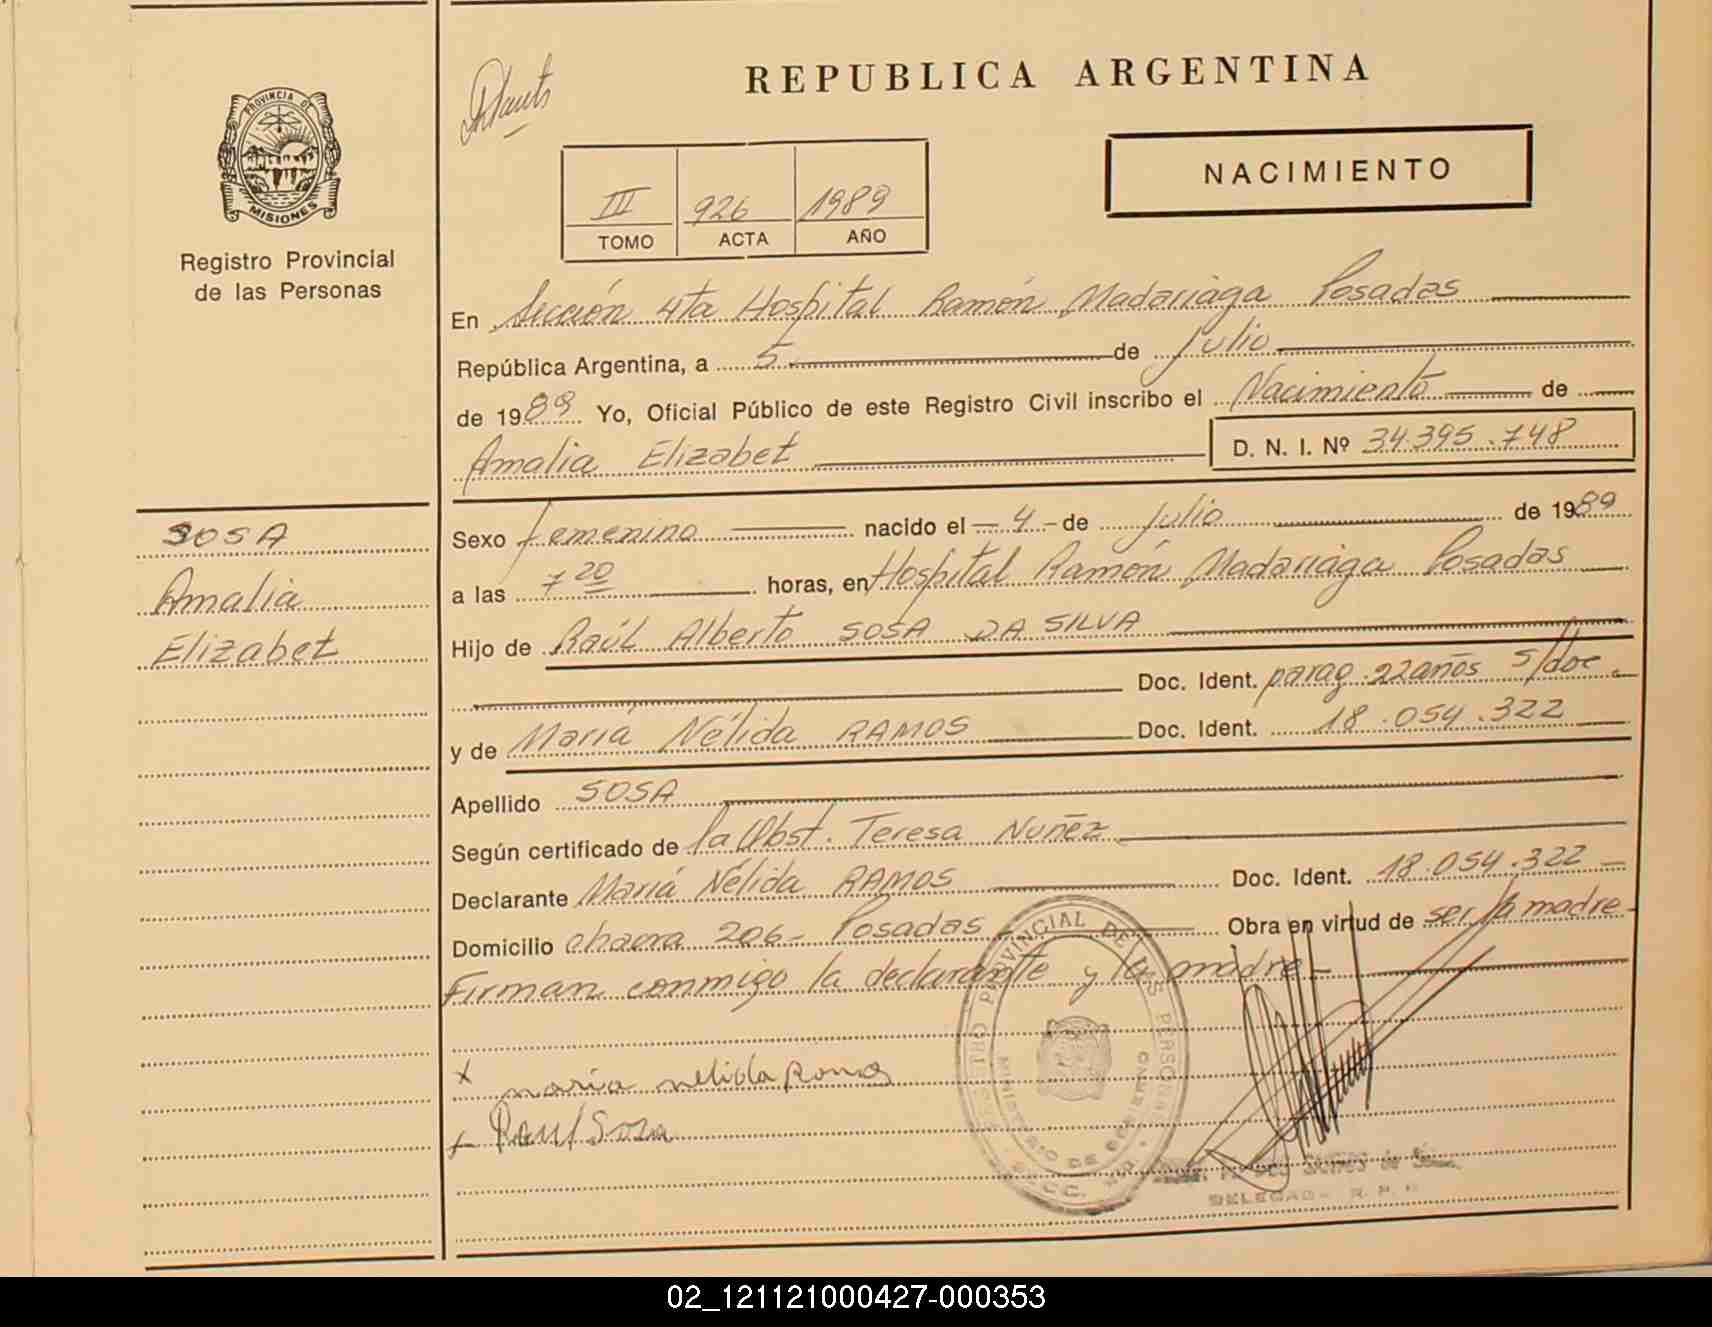 PROVINCIA DE
MISIONES
Registro Provincial
de las Personas
SOSA
Amalia
Elizabet
REPUBLICA ARGENTINA
NACIMIENTO
III 926 1989
TOMO ACTA AÑO
En Sección 4ta Hospital Ramón Madariaga Posadas
República Argentina, a 5 de julio
de 1989 Yo, Oficial Público de este Registro Civil inscribo el Nacimiento de
Amalia Elizabet D. N. I. Nº 34.395.748
Sexo femenino nacido el 4 de julio de 1989
a las 7 20 horas, en Hospital Ramón Madariaga Posadas
Hijo de Raúl Alberto SOSA DA SILVA
Doc. Ident. parag. 22 años s/doc.
y de María Nélida RAMOS Doc. Ident. 18.054.322
Apellido SOSA
Según certificado de la Obst. Teresa Nuñez
Declarante María Nélida RAMOS Doc. Ident. 18.054.322
Domicilio chacra 206- Posadas Obra en virtud de ser la madre
Firman conmigo la declarante y la madre
x maria nelida Ramos
x Raul Sosa
MINISTERIO DE GOBIERNO
02_121121000427-000353